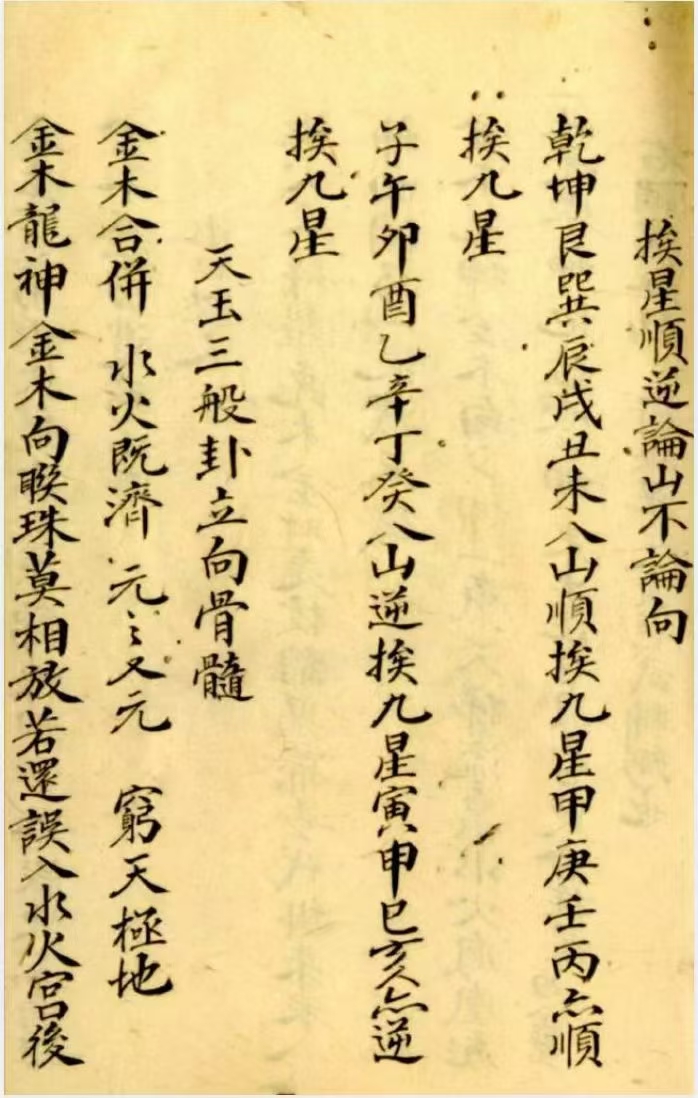 挨星順逆論山不論向
乾坤艮巽辰戌丑未八山順挨九星甲庚壬丙亦順
挨九星
子午卯酉乙辛丁癸八山逆挨九星寅申巳亥亦逆
挨九星
天玉三般卦立向骨髓
金木合併 水火既濟 元〻又元 窮天極地
金木龍神金木向聯珠莫相放若還誤入水火宮後